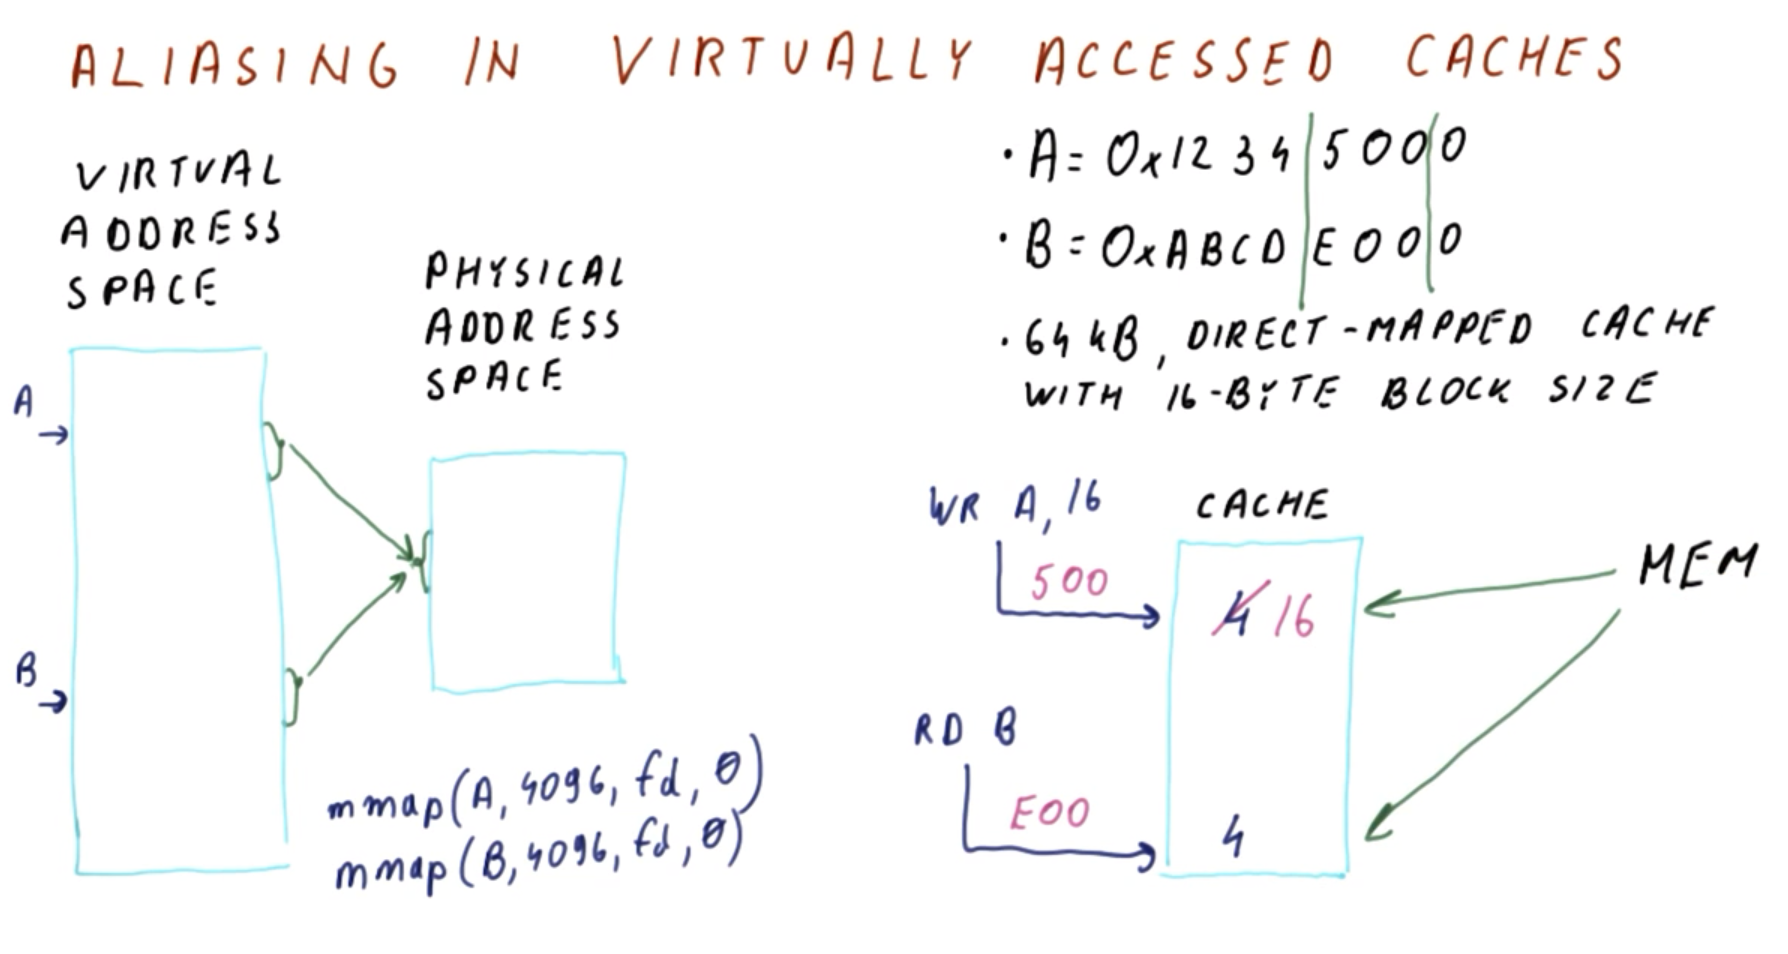 ALIASING IN VIRTUALLY ACCESSED CACHES
VIRTUAL
ADDRESS
SPACE
PHYSICAL
ADDRESS
SPACE
A
B
mmap(A, 4096, fd, 0)
mmap(B, 4096, fd, 0)
· A = 0x1234 5000
· B = 0xABCD E000
· 64 kB, DIRECT-MAPPED CACHE
WITH 16-BYTE BLOCK SIZE
WR A, 16
500
CACHE
4 16
MEM
RD B
E00
4